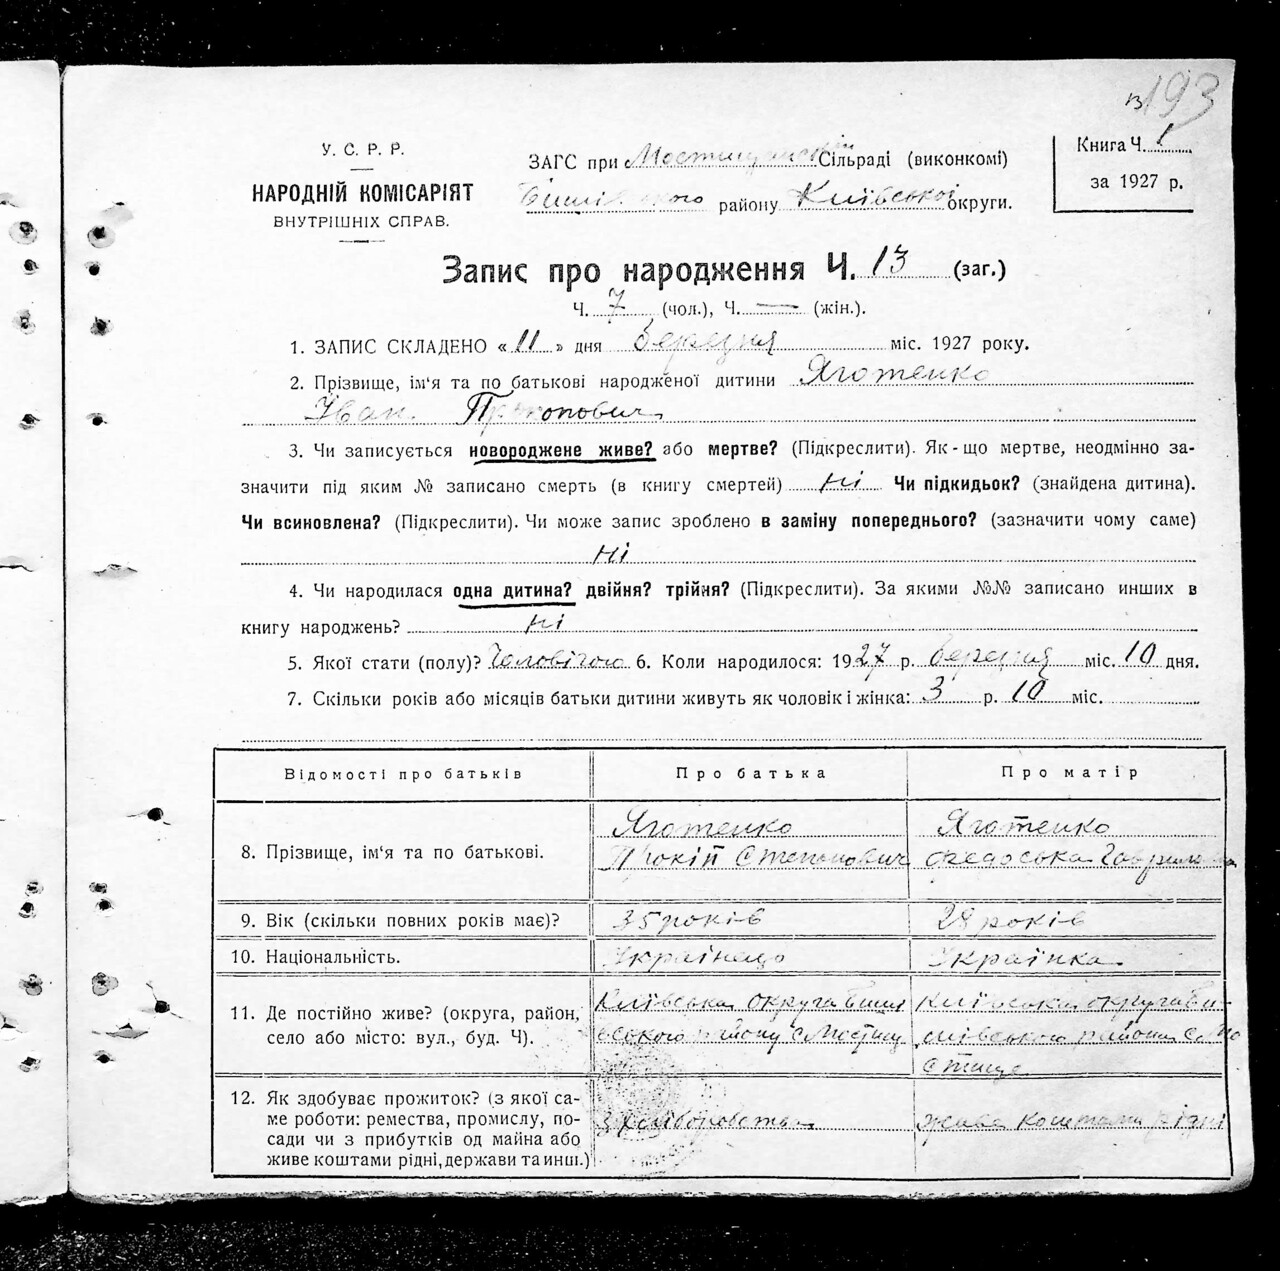 193
У. С. Р. Р.
НАРОДНІЙ КОМІСАРІЯТ
ВНУТРІШНІХ СПРАВ.
ЗАГС при Мостищанській Сільраді (виконкомі)
Бишівського району Київської округи.
Книга Ч. 1
за 1927 р.
Запис про народження Ч. 13 (заг.)
Ч. 7 (чол.), Ч. — (жін.).
1. ЗАПИС СКЛАДЕНО « 11 » дня Березня міс. 1927 року.
2. Прізвище, ім‘я та по батькові народженої дитини Яготенко
Іван Прокопович
3. Чи записується новороджене живе? або мертве? (Підкреслити). Як-що мертве, неодмінно за-
значити під яким № записано смерть (в книгу смертей) ні Чи підкидьок? (знайдена дитина).
Чи всиновлена? (Підкреслити). Чи може запис зроблено в заміну попереднього? (зазначити чому саме)
ні
4. Чи народилася одна дитина? двійня? трійня? (Підкреслити). За якими №№ записано инших в
книгу народжень? ні
5. Якої стати (полу)? Чоловічою 6. Коли народилося: 1927 р. Березня міс. 10 дня.
7. Скільки років або місяців батьки дитини живуть як чоловік і жінка: 3 р. 10 міс.
Відомості про батьків Про батька Про матір
8. Прізвище, ім‘я та по батькові. Яготенко Прокіп Степанович Яготенко Федоська
9. Вік (скільки повних років має)? 35 років 29 років
10. Національність. Українець Українка
11. Де постійно живе? (округа, район, Київська округа Биші Київська округа Би-
село або місто: вул., буд. Ч). вського району с Мостищ шівського району с. Мо
стище
12. Як здобуває прожиток? (з якої са-
ме роботи: ремества, промислу, по- З хліборобства живе коштами рідні
сади чи з прибутків од майна або
живе коштами рідні, держави та инш.)